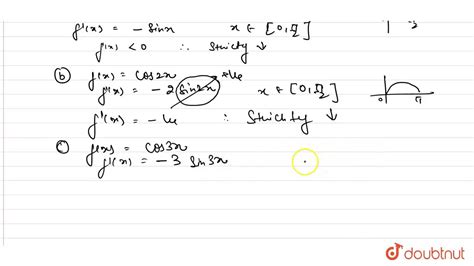 f'(x) = - sinx x ∈ [0, π/2]
f'(x) < 0 ∴ Strictly ↓
(b) f(x) = cos2x +ve
f'(x) = - 2 sin2x x ∈ [0, π/2]
0 π
f'(x) = - ve ∴ Strictly ↓
f(x) = cos3x
f'(x) = - 3 sin3x
doubtnut